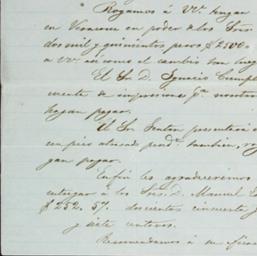 Rogamos á VV. tengan
en Veracruz en poder de los Sres.
dos mil y quinientos pesos $ 2500
a VV. así como el cambio
El Sr. D. Ignacio
mento de impresiones qe. nosotros
hagan pagar.
El Sr. presentará
un piso pend. tambien,
gan pagar.
En fin les agradeceremos
entregar á los Sres. D. Manuel
$ 252. 57. doscientos cincuenta y
y siete centavos.
Recomendamos á su